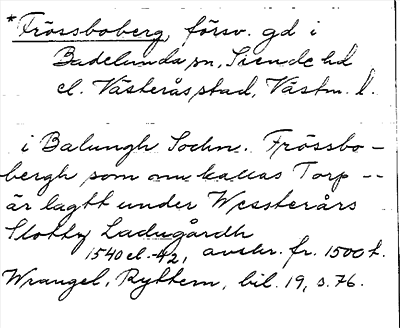 *Frössboberg, försv. gd i
Badelunda sn, Siende hd
el. Västerås stad, Västm. l.
i Balungh Sochn. Frössbo-
bergh som nu kallas Torp --
är lagtt under Wessterårs
Slotty Ladugårdh
1540 el. -42, avskr. fr. 1500 t.
Wrangel, Ryttern, bil. 19, s. 76.